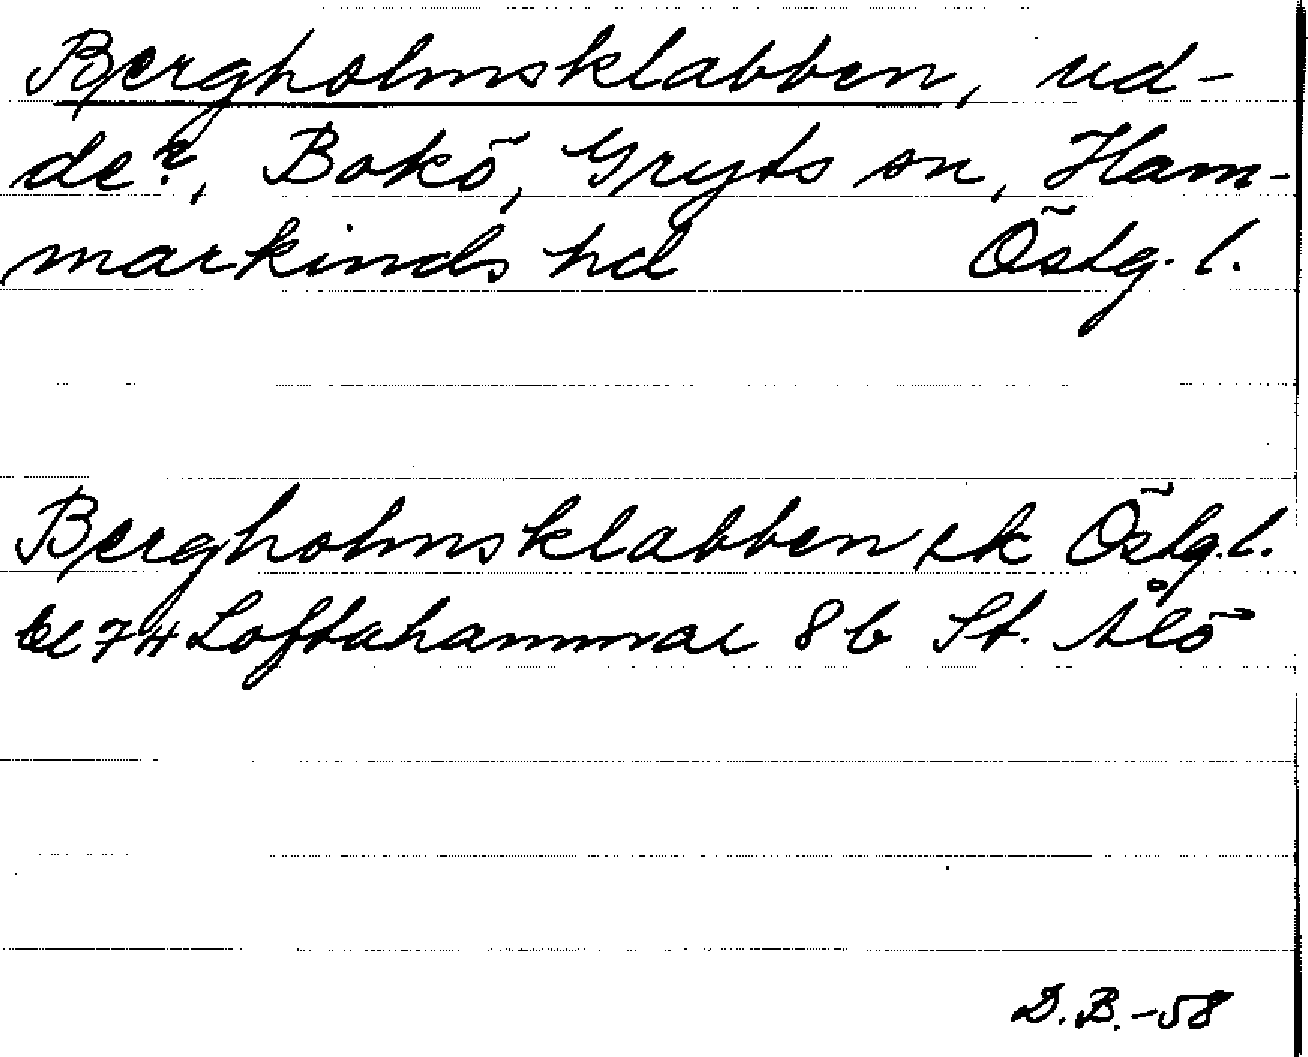 Bergholmsklabben, ud-
de?, Bokö, Gryts sn, Ham-
markinds hd Östg. l.
Bergholmsklabben ek Östg. l.
bl 74 Loftahammar 8 b St. Ålö
D. B. -58